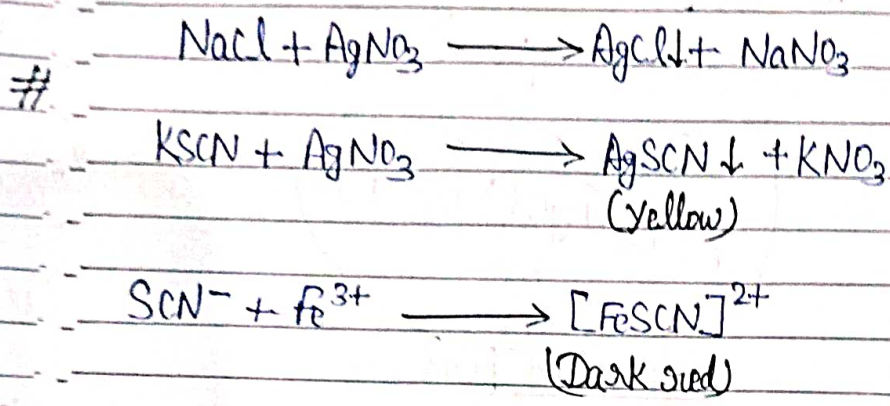 NaCl + AgNO₃ ⟶ AgCl↓ + NaNO₃
#
KSCN + AgNO₃ ⟶ AgSCN↓ + KNO₃
(Yellow)
SCN⁻ + fe³⁺ ⟶ [FeSCN]²⁺
(Dark red)